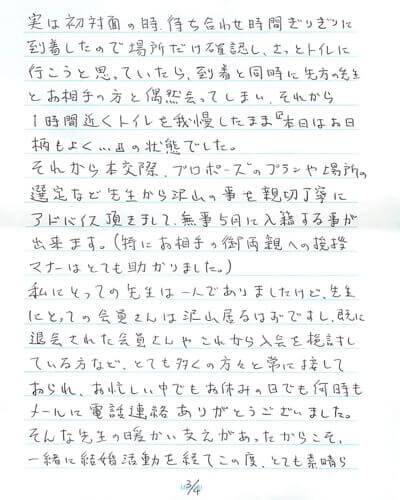 実は初対面の時、待ち合わせ時間ぎりぎりに
到着したので場所だけ確認し、さっとトイレに
行こうと思っていたら、到着と同時に先方の先生
とお相手の方と偶然会ってしまい、それから
1時間近くトイレを我慢したまま『本日はお日
柄もよく…』の状態でした。
それから本交際、プロポーズのプランや場所の
選定など先生から沢山の事を親切丁寧に
アドバイス頂きまして、無事5月に入籍する事が
出来ます。(特にお相手の御両親への挨拶
マナーはとても助かりました。)
私にとっての先生は一人でありましたけど、先生
にとっての会員さんは沢山居るはずですし、既に
退会された会員さんやこれから入会を検討し
ている方など、とても多くの方々と常に接して
おられ、お忙しい中でもお休みの日でも何時も
メールに電話連絡ありがとうございました。
そんな先生の暖かい支えがあったからこそ、
一緒に結婚活動を経てこの度、とても素晴ら
3/4